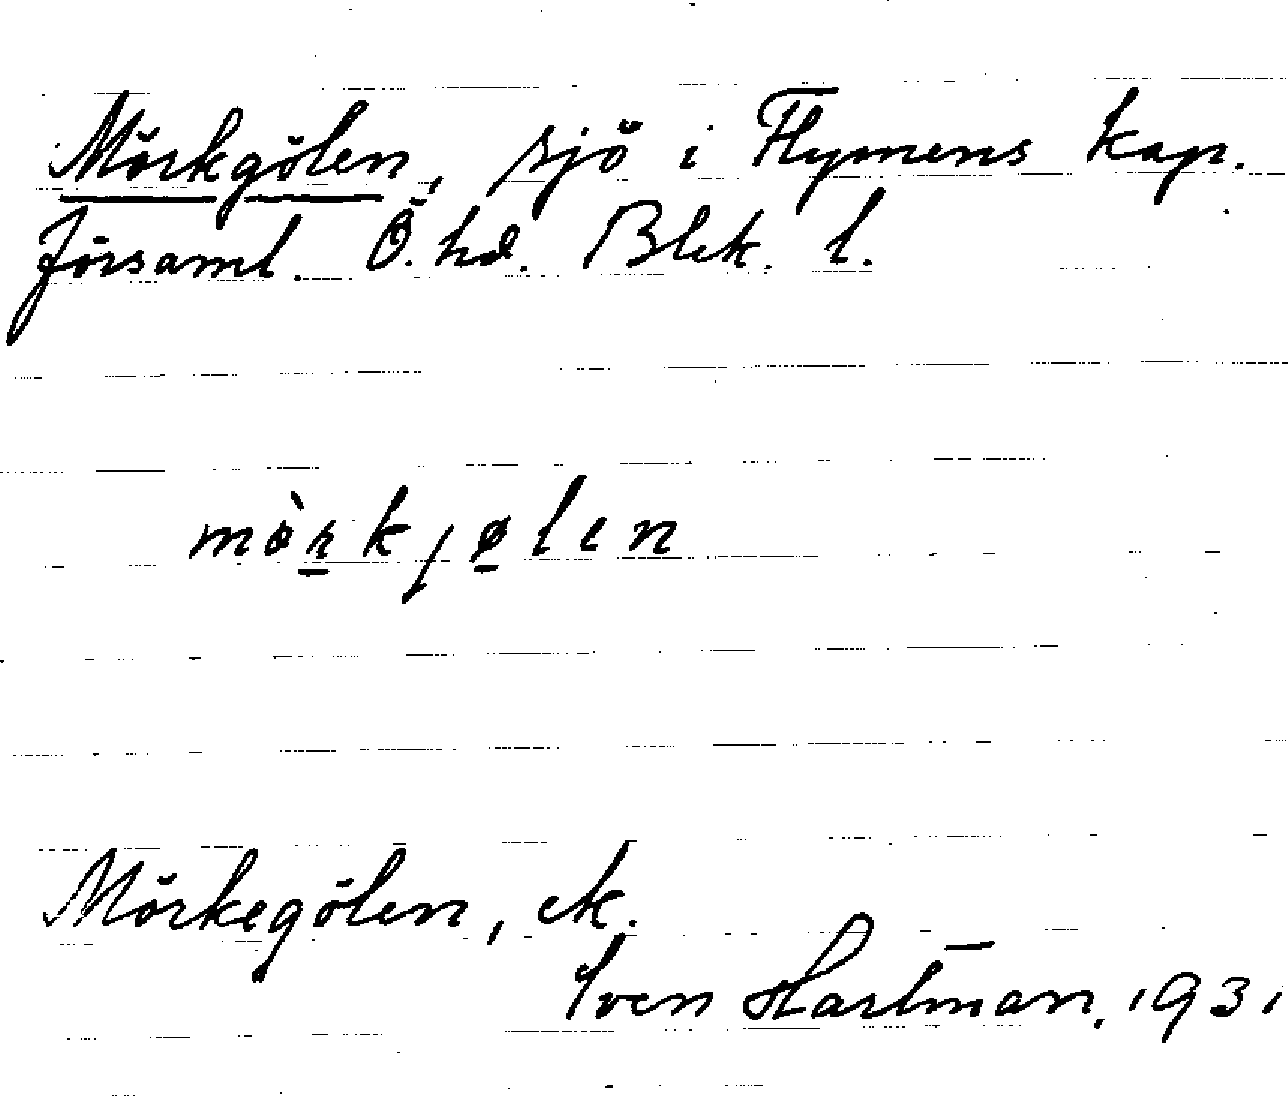 Mörkgölen, sjö i Flymens kap.
församl. Ö. hd. Blek. l.
mòrkjølen
Mörkegölen, ek.
Sven Hartman, 1931